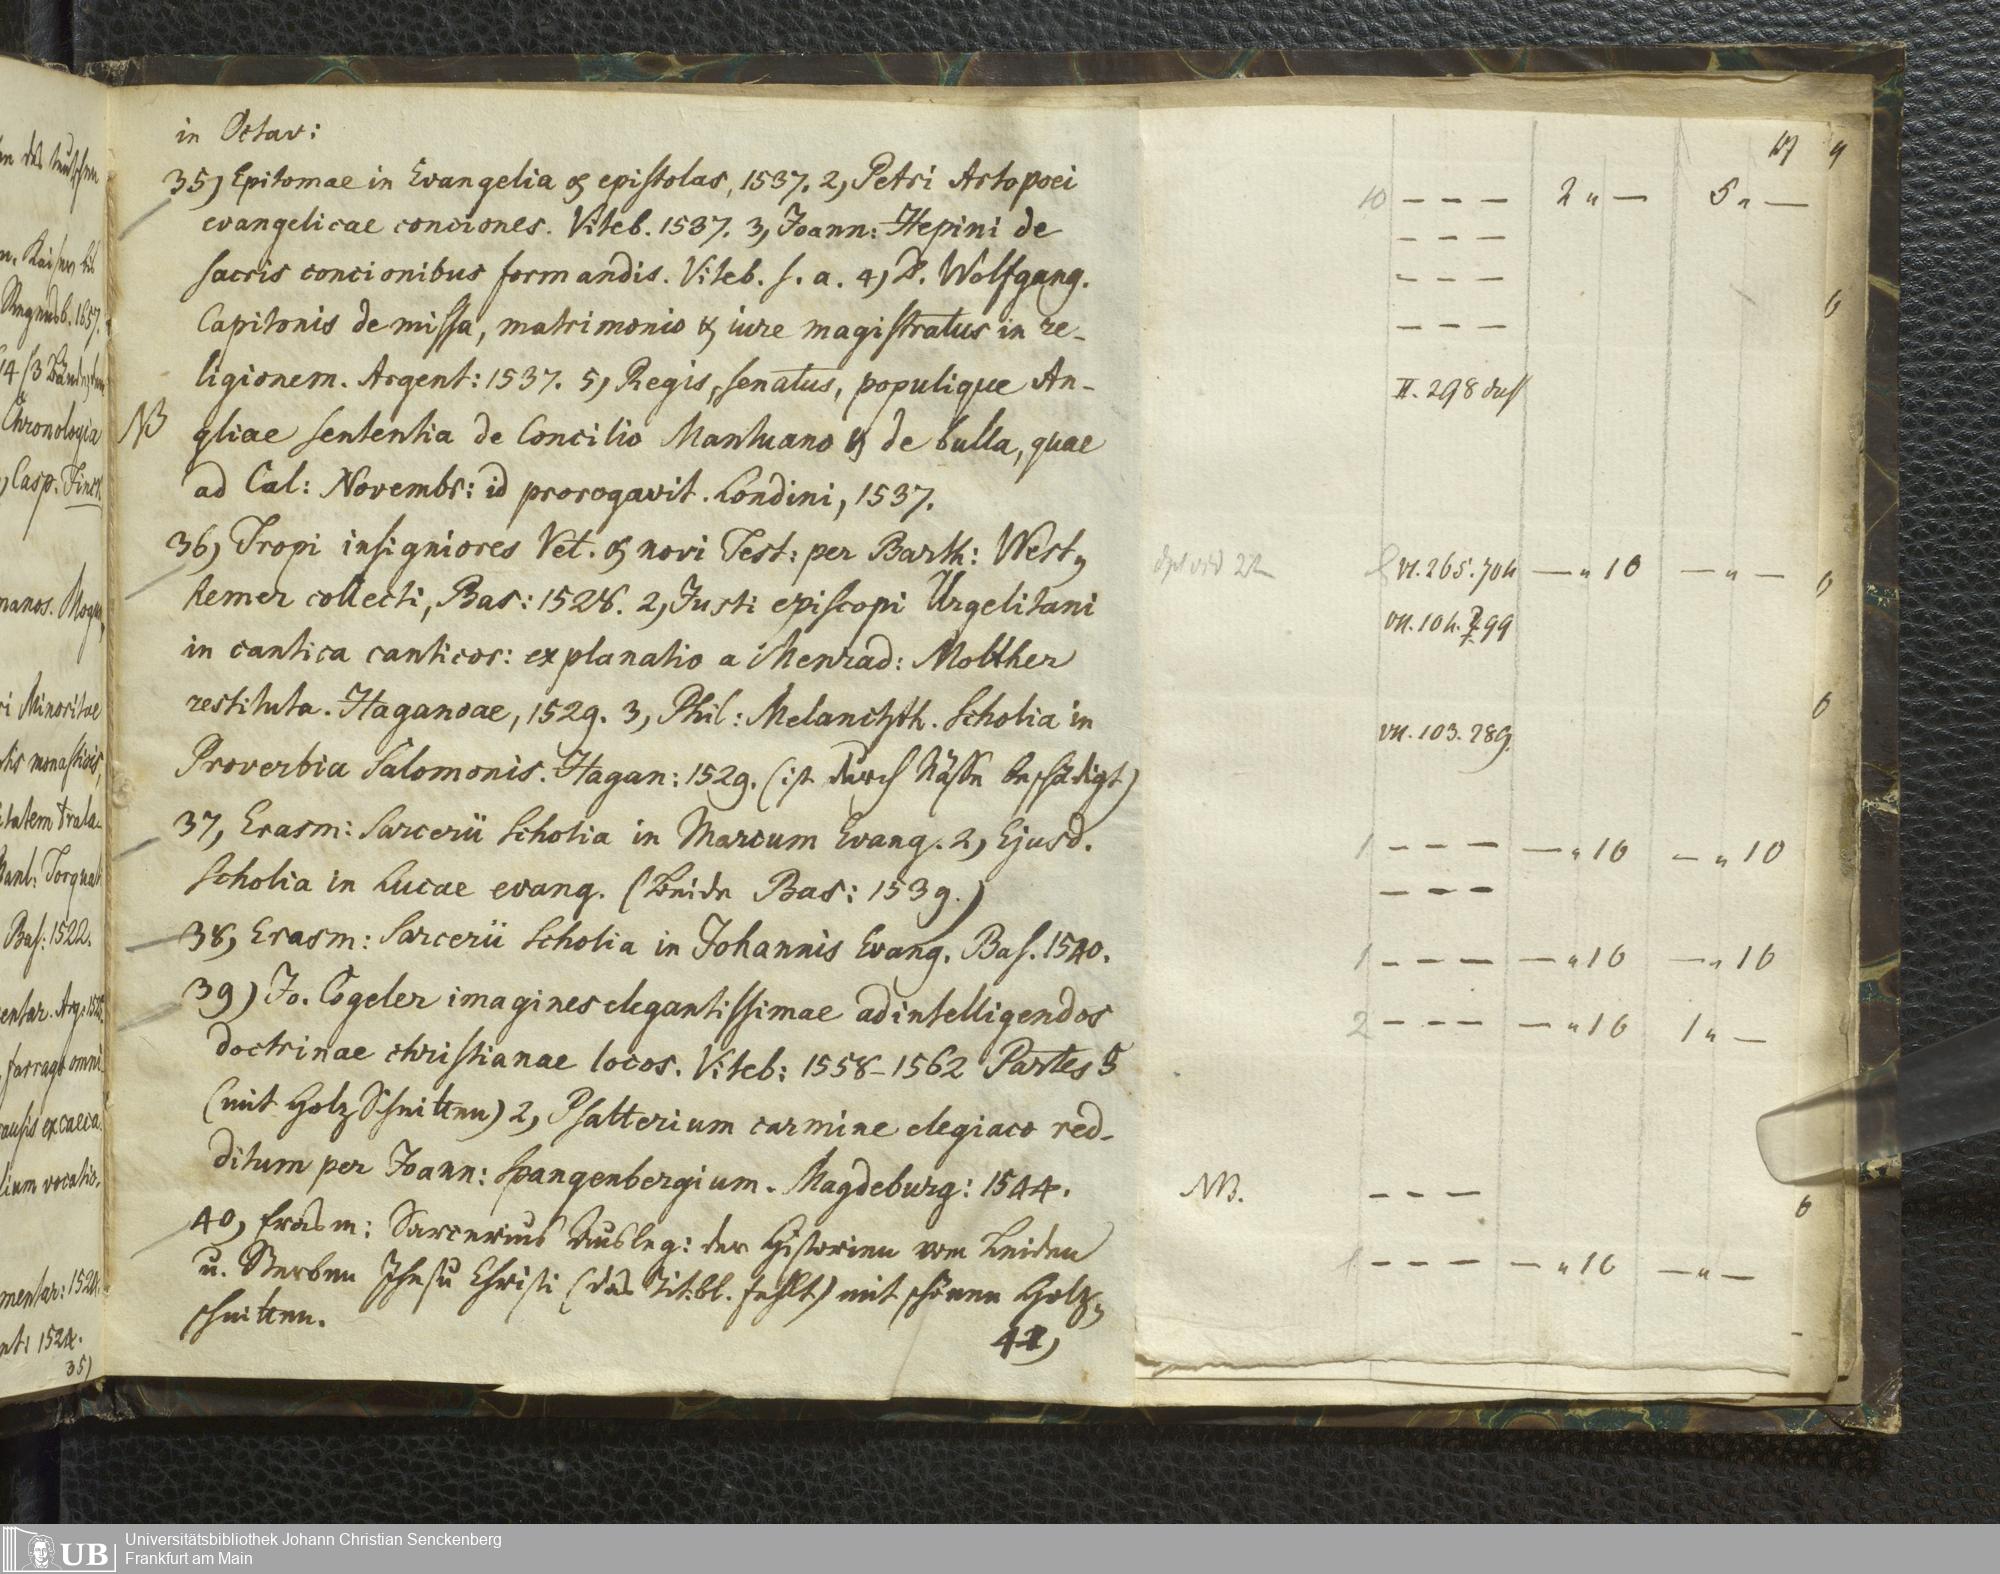 in Octav:
35, Epitomae in Evangelia & epistolas, 1537. 2, Petri Artopoei
evangelicae conciones. Viteb. 1537. 3, Joann: Hepini de
sacris concionibus formandis. Viteb. s. a. 4, D. Wolfgang.
Capitonis de missa, matrimonio & iure magistratus in re-
ligionem. Argent: 1537. 5, Regis, senatus, populique An-
NB gliae sententia de Concilio Mantuano & de bulla, quae
ad Cal: Novembr: id prorogavit. Londini, 1537.
36, Tropi insigniores Vet. & novi Test: per Barth: West-
hemer collecti, Bas: 1528. 2, Justi episcopi Urgelitani
in cantica canticor: explanatio a Menrad: Molther
restituta. Haganoae, 1529. 3, Phil: Melanchth. Scholia in
Proverbia Salomonis. Hagan: 1529. (ist durch Nässe beschädigt)
37, Erasm: Sarcerii Scholia in Marcum Evang. 2, Ejusd.
Scholia in Lucae evang. (Beide Bas: 1539.)
38, Erasm: Sarcerii Scholia in Johannis Evang. Bas. 1540.
39) Jo. Cogeler imagines elegantissimae ad intelligendos
doctrinae christianae locos. Viteb: 1558-1562 Partes 5
(mit Holz Schnitten) 2, Psalterium carmine elegiaco red-
ditum per Joann: Spangenbergium. Magdeburg: 1544.
40, Erasm: Sarcerius Ausleg: der Historien vom Leiden
u. Sterben Jhesu Christi (das Titbl. fehlt) mit schönen Holz-
schnitten.
41,
10 - - - 2 " — 5 " —
- - -
- - -
- - -
II. 298
VI. 265. 704 — " 10 — " —
VII. 104. 99
VII. 103. 289
1 - - - — " 10 — " 10
- - -
1 - - - — " 10 — " 10
2 - - - — " 10 1 " —
NB. - - -
1 - - - — " 10 — " —
n. Kaiser
Regensb. 1657.
Chronologia
, Casp. Finck
manos. Mogun
ri Minoritae
tis monasticis,
itatem trala-
Bas: 1522.
entar. Arg: 1525
farrago omni
ausis excaeca
lium vocatio.
mentar: 1524.
nt: 1524.
35)
UB
Universitätsbibliothek Johann Christian Senckenberg
Frankfurt am Main